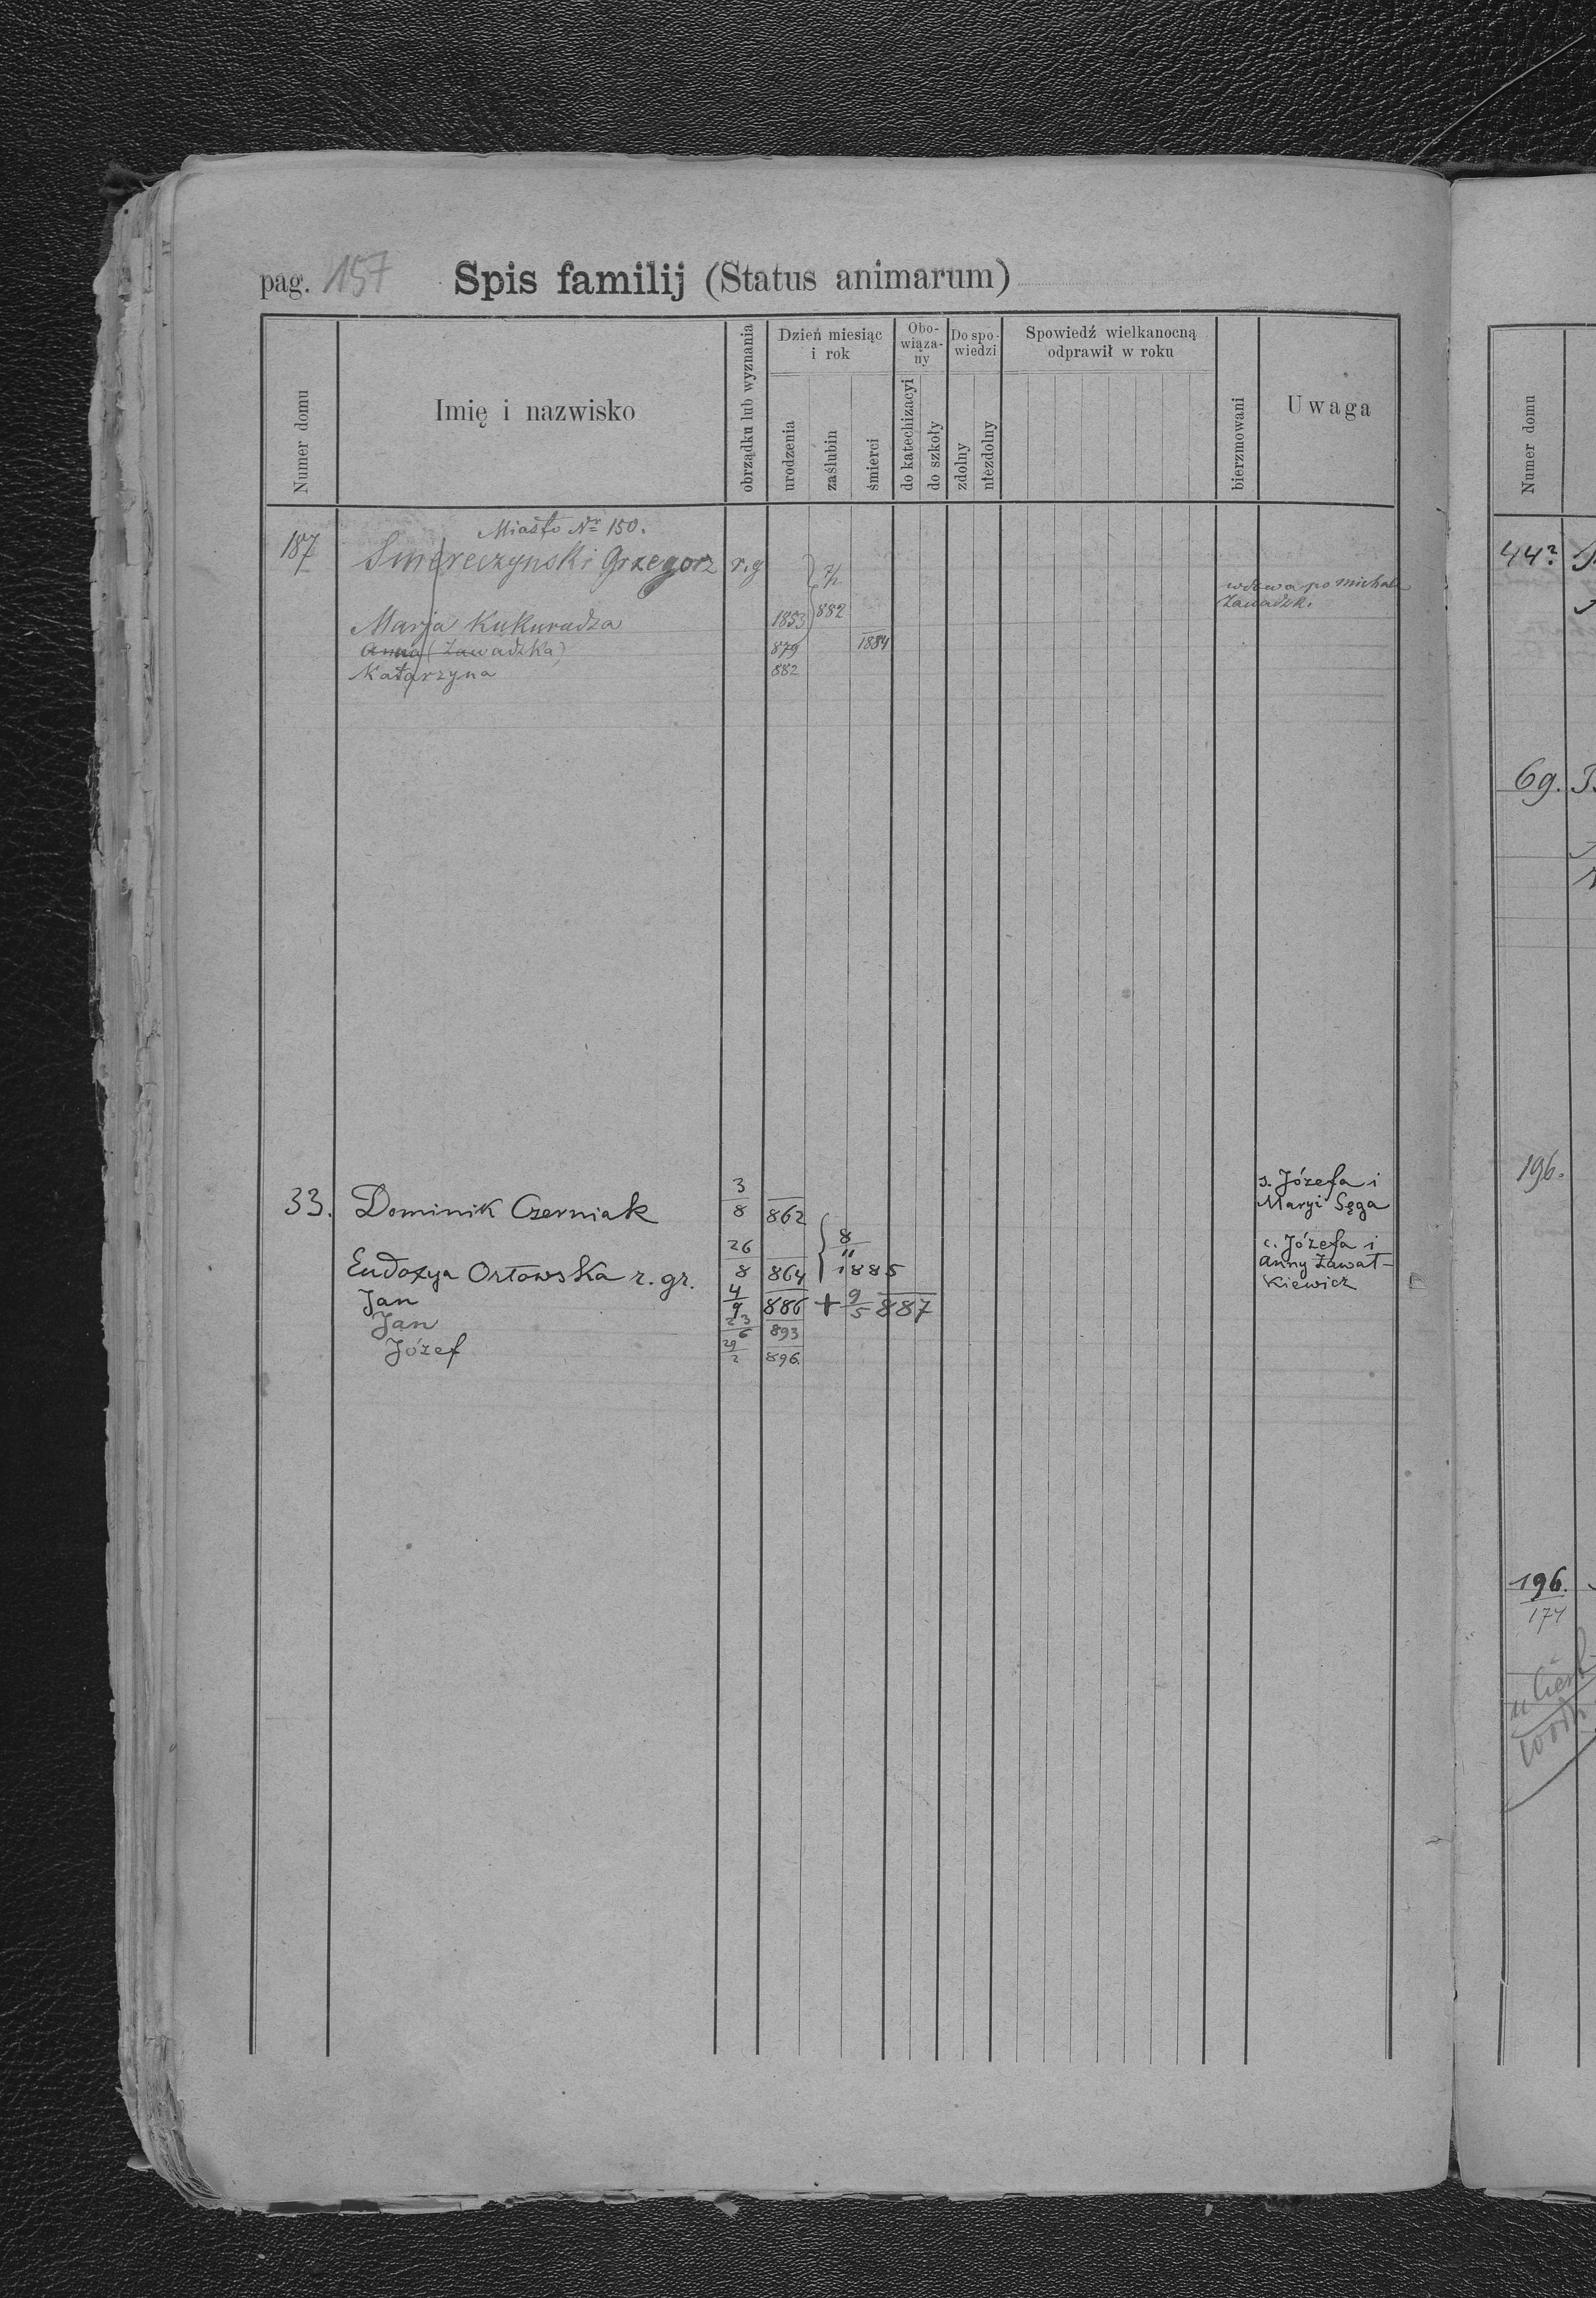 pag. 157 Spis familij (Status animarum)
Numer domu
Imię i nazwisko
obrządku lub wyznania
Dzień miesiąc i rok
urodzenia
zaślubin
śmierci
Obo-
wiąza-
ny
do katechizacyi
do szkoły
Do spo-
wiedzi
zdolny
niezdolny
Spowiedź wielkanocną
odprawił w roku
bierzmowani
Uwaga
Numer domu
Miasto Nr 150.
187 Smereczynski Grzegorz r.g
7/2
882
wdowa po Michale
Zawadzk.
Marja Kukuradza 1853
Anna (Zawadzka) 879 1884
Katarzyna 882
33. Dominik Czerniak 3/8 862
s. Józefa i
Maryi Sęga
Eudoxya Orłowska r. gr. 26/8 864
8/11 1885
c. Józefa i
Anny Zawał-
kiewicz
Jan 4/9 886 + 9/5 887
Jan 23/6 893
Józef 29/2 896.
44?
69.
196.
196.
174